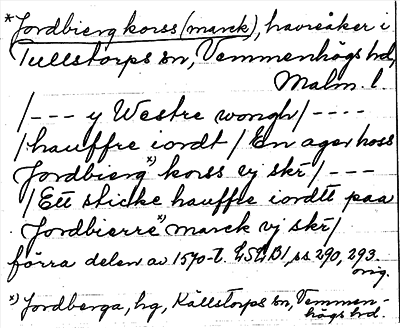 *Jordbierg korss (marck), havreåker i
Tullstorps sn, Vemmenhögs hd,
Malm. l.
/--- y Westre wongh/----
/hauffre iordt/ En ager hoss
Jordbierg*) korss vj skr/---
/Ett sticke hauffre iordtt paa
Jordbierre*) marck vj skr/
förra delen av 1570-t. LSLB1, ss 290, 293.
orig.
*) Jordberga, hg, Källstorps sn, Vemmen-
högs hd.